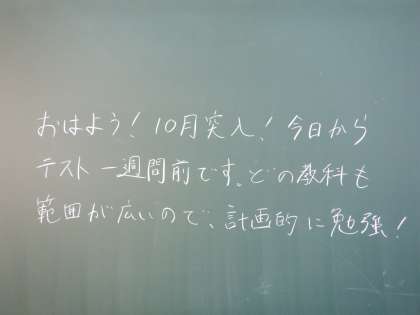 おはよう！10月突入！今日から
テスト一週間前です。どの教科も
範囲が広いので、計画的に勉強！